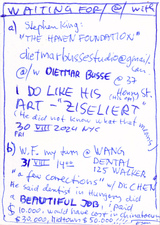 WAITING FOR / @ / with
a) Stephen King:
"THE HAVEN FOUNDATION"
dietmarbussestudio@gmail.com
@/w DIETMAR BUSSE @ 37
I DO LIKE HIS
ART - "ZISELIERT"
(He did not know what that
30 VIII 2024 NYC
FRI
b) W.F. my turn @ WANG
31 VIII / 14 DENTAL
125 WALKER
"a few corrections" w/ DR. CHEN
He said dentist in Hungary did
a BEAUTIFUL JOB, I paid
$10.000, would have cost in Chinatown
$30.000, Midtown $50.000!!!